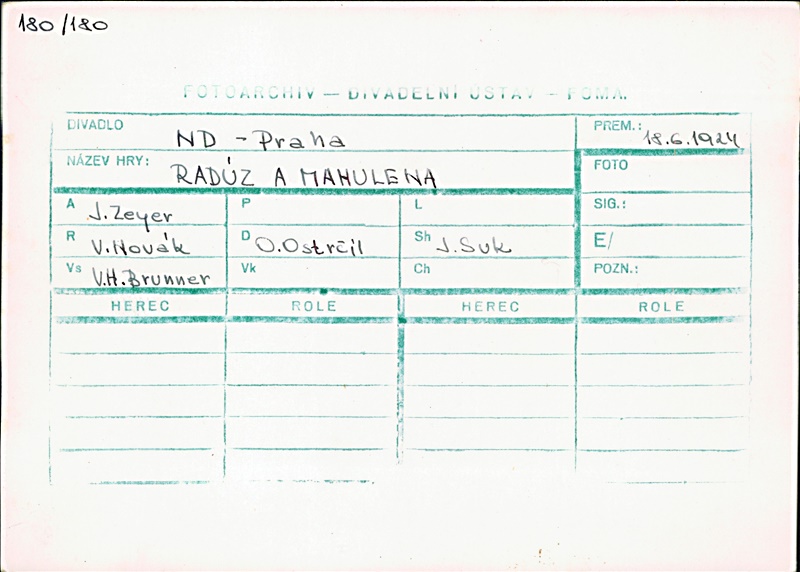 180/180
FOTOARCHIV – DIVADELNÍ ÚSTAV – FOMA.
DIVADLO ND - Praha PREM.: 18.6.1924
NÁZEV HRY: RADÚZ A MAHULENA FOTO
A J. Zeyer P L SIG.:
R V. Novák D O. Ostrčil Sh J. Suk E/
Vs V.H. Brunner Vk Ch POZN.:
HEREC ROLE HEREC ROLE